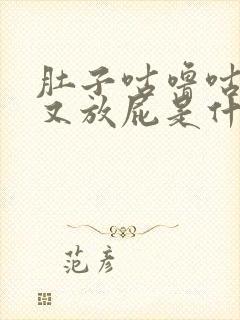 肚子咕噜咕
又放屁是什
范彦